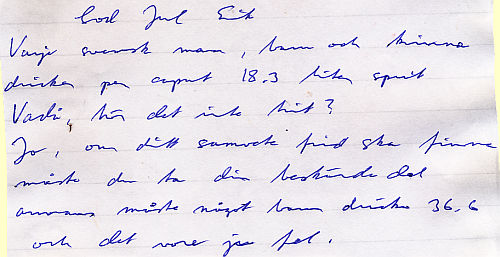 God Jul Erik
Varje svensk man, barn och kvinna
dricker per caput 18.3 liter sprit
Vadå, hör det inte hit?
Jo, om ditt samvete frid ska finna
måste du ta din beskärda del
annars måste något barn dricka 36.6
och det vore ju fel.